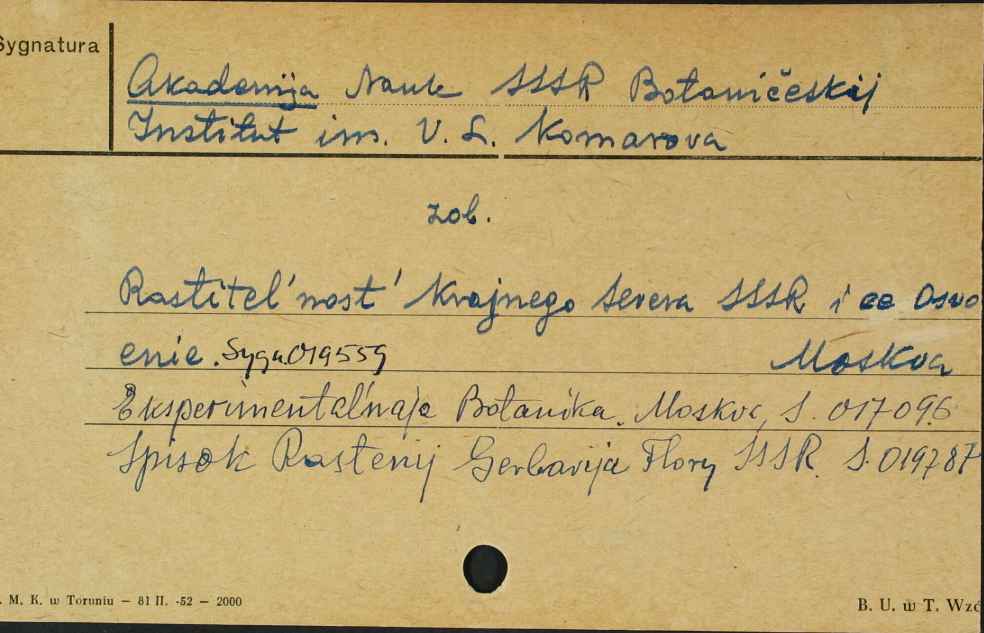 Sygnatura
Akademija Nauk SSSR Botaničeskij
Institut im. V. L. Komarova
zob.
Rastitel'nost' Krajnego Severa SSSR i ee Osvo
enie. Sygn. 019559 Moskva
Eksperimental'naja Botanika. Moskva, S. 017096
Spisok Rastenij Gerbarija Flory SSSR. S. 019787
. M. K. w Toruniu — 81 II. -52 — 2000
B. U. w T. Wzó